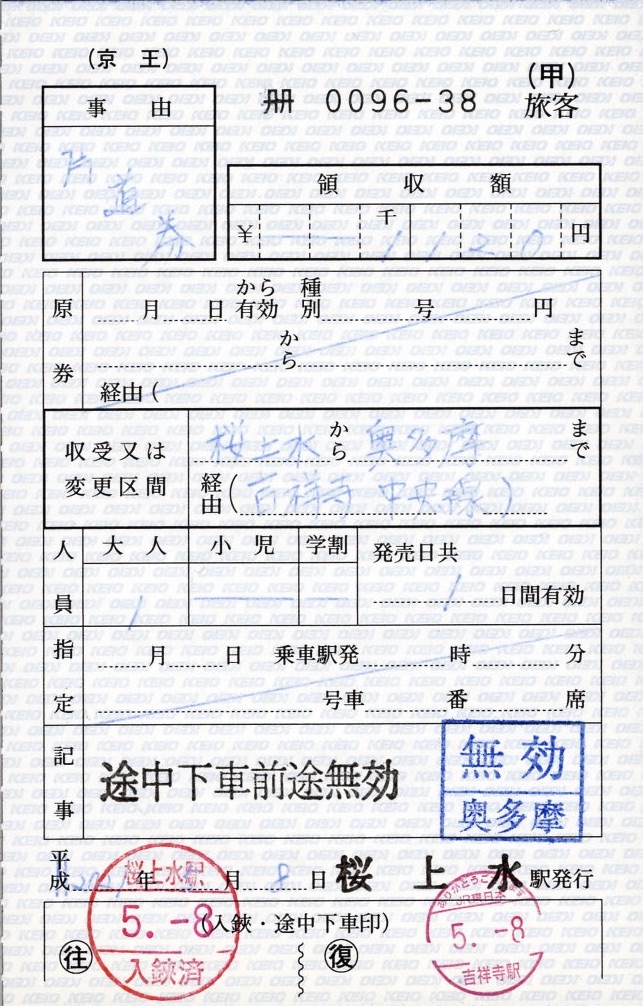 (京 王)
冊 0096-38
(甲)
旅客
事 由
片道券
領 収 額
千
¥ 1120 円
原券
月 日 から有効 種別 号 円
から まで
経由(
収受又は変更区間
桜上水 から 奥多摩 まで
経由(吉祥寺 中央線)
人員
大人 小児 学割 発売日共
1
1 日間有効
指定
月 日 乗車駅発 時 分
号車 番 席
記事
途中下車前途無効
無効
奥多摩
平成 年 月 8 日 桜上水 駅発行
(入鋏・途中下車印)
往
復
桜上水駅
5.-8
入鋏済
ありがとうございます
JR東日本
5.-8
吉祥寺駅